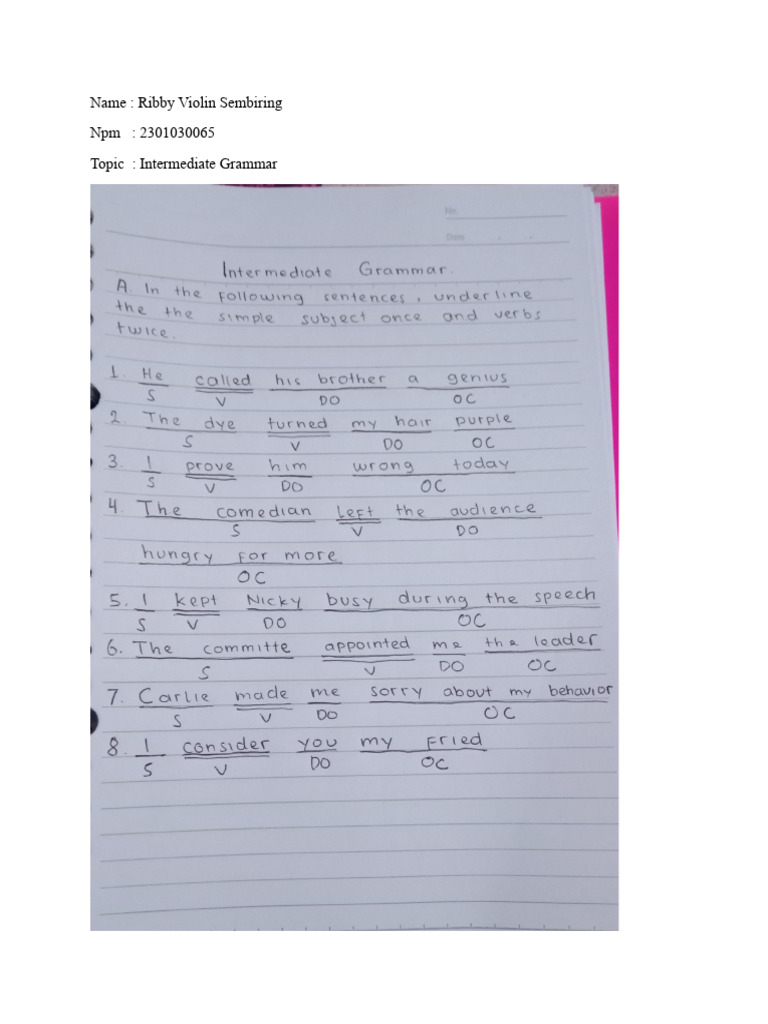 Name : Ribby Violin Sembiring
Npm : 2301030065
Topic : Intermediate Grammar
No.
Date
Intermediate Grammar.
A. In the following sentences, underline
the the simple subject once and verbs
twice.
1. He called his brother a genius
S V DO OC
2. The dye turned my hair purple
S V DO OC
3. I prove him wrong today
S V DO OC
4. The comedian left the audience
S V DO
hungry for more
OC
5. I kept Nicky busy during the speech
S V DO OC
6. The committe appointed me the leader
S V DO OC
7. Carlie made me sorry about my behavior
S V DO OC
8. I consider you my Fried
S V DO OC